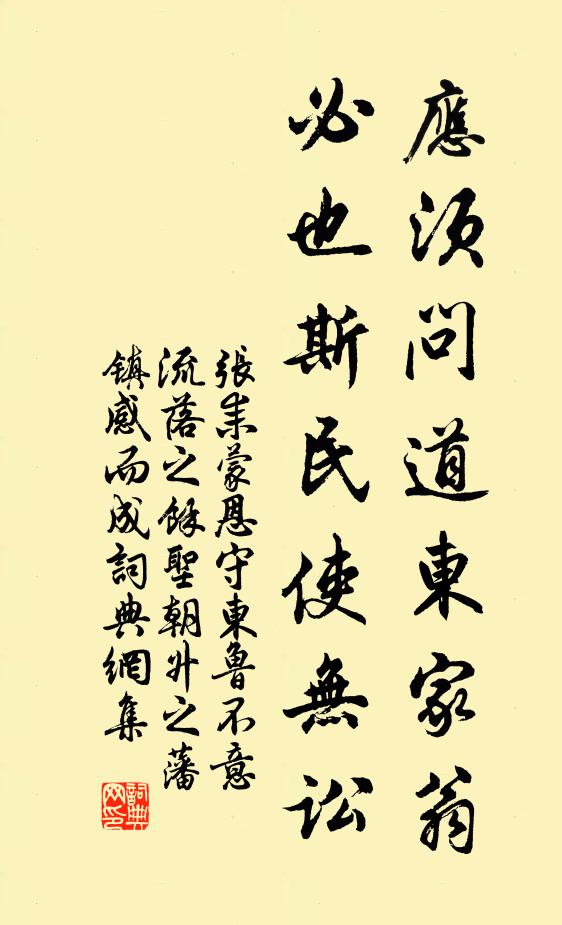 應須問道東家翁
必也斯民使無訟
張耒蒙恩守東魯不意
流落之餘聖朝升之藩
鎮感而成詞典網集
詞典網印